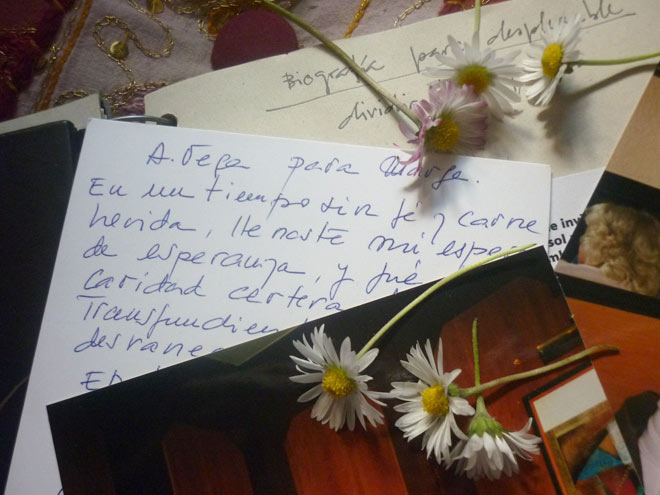 Biografía para desplegable
A. Vega para Marga.
En un tiempo sin fé y carne
herida, llenaste mi espe
de esperanza, y fué
caridad certera
Transfundien
desvane
En
e inv
sol